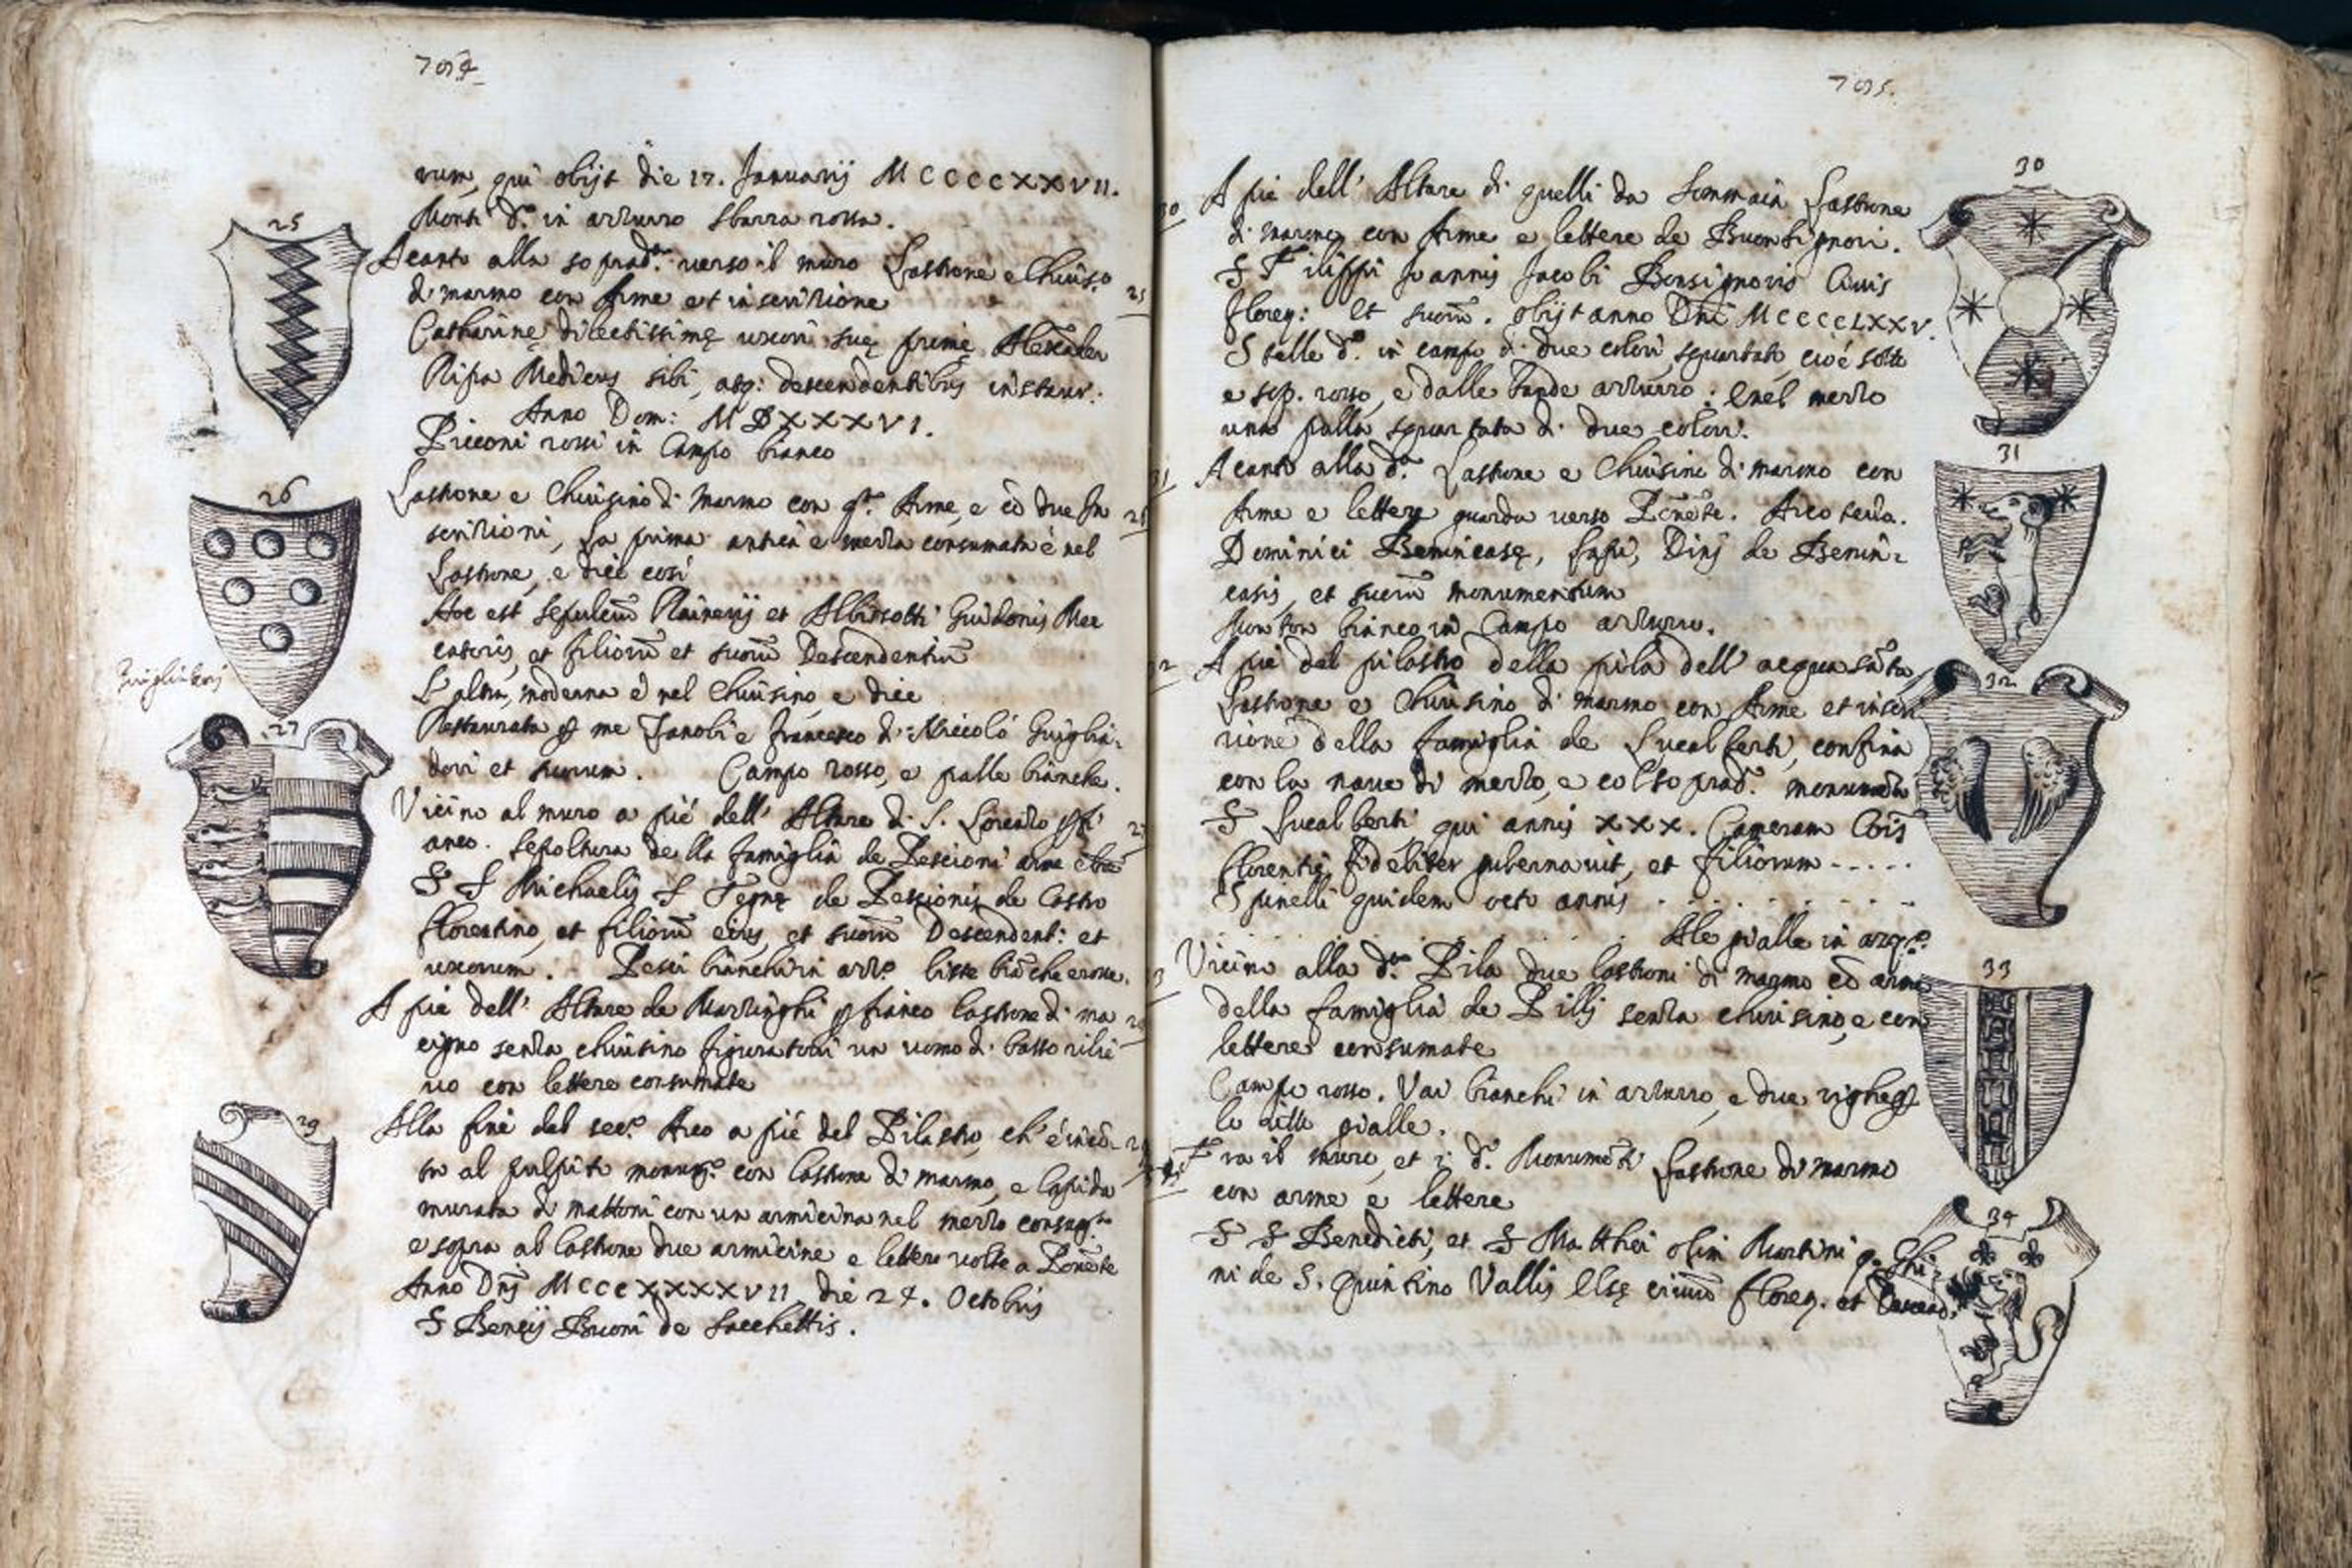 rum, qui obijt die 17. Januarij MCCCCXXVII.
Monti d.º in azzurro sbarra rossa.
25
Acanto alla soprad.ª verso il muro Lastrone e Chiuso
di marmo con Arme et inscrizione
25
Catharinę dilectissimę uxori suę primę Alexāder
Ripa Medicus sibi, atq: descendentibus instaur:
Anno Dom: MDXXXVI.
Picconi rossi in Campo bianco
26
Lastrone e Chiusino di Marmo con q.ª Arme, e cō due In
scrizioni, La prima antica e mezza consumata è nel
Lastrone, e dice così
Hoc est sepulcrū Rainerij et Albizzotti Guidonis Mer
catoris, et filiorū et suorū Descendentiū
L'altra, moderna è nel Chiusino, e dice
Restaurata p me Zanobi e Francesco di Niccolò Guiglia-
dori et suorum. Campo rosso, e palle bianche.
27
Vicino al muro a piè dell' Altare di S. Lorenzo
27
aneo. sepoltura della famiglia de Pescioni arme
S S Michaelis S Tegnę de Pescionis de Castro
florentino, et filiorū eius, et suorū Descendent: et
uxorum. Pesci bianchi in azz.º liste biāche e rosse.
A piè dell' Altare de Marzinghi p fianco lastrone di ma
cigno senza chiusino figuratovi un uomo di basso rilie
vo con lettere consumate
29
Alla fine del sec.º Arco a piè del Pilastro, ch'è incō-
tro al pulpito monum.º con lastrone di marmo, e lapida
murata di mattoni con un armicina nel mezzo consum.ª
e sopra al lastrone due armicine e lettere volte a Ponēte
Anno Dnj MCCCXXXXVII die 24. Octobris
S Bencij Buoni de Sacchettis.
30
A piè dell' Altare di quelli da Sommaia Lastrone
30
di marmo con Arme e lettere de Buonsignori.
S Filippi Joannis Jacobi Bonsignoris Civis
floren: et suorū. obijt anno Dni MCCCCLXXV.
Stelle d.º in campo di due colori, squartato, cioè sotto
e sop. rosso, e dalle bande azzurro; e nel mezzo
una palla squartata di due colori.
31
Acanto alla d.ª Lastrone e Chiusino di marmo con
31
Arme e lettere guarda verso Ponēte. Arco terza.
Dominici Benincasę, Lapi, Dini de Benin-
casis, et suorū monumentum
Monton bianco in Campo azzurro.
32
A piè del pilastro della pila dell' acqua sāta
32
Lastrone e Chiusino di marmo con Arme et inscri
zione della famiglia de Lucalberti, confina
con la nave di mezzo, e col soprad.º monumēto
S Lucalberti qui annis XXX. Cameram Cōis
florentię fideliter gubernavit, et filiorum - - - - -
Spinelli quidem octo annis . . . . . . .
Ale gialle in azz.º
33
Vicino alla d.ª Pila due lastroni di marmo cō arme
della famiglia de Pilli senza chiusino, e con
lettere consumate
Campo rosso. Vai bianchi in azzurro, e due righe p
lo ritto gialle.
Fra il muro, et i d.i Monumēti Lastrone di marmo
con arme e lettere
34
S S Benedicti, et S Matthei olim Martini q. Ghi-
ni de S. Quintino Vallis Elsę civiū floren. et Descend.